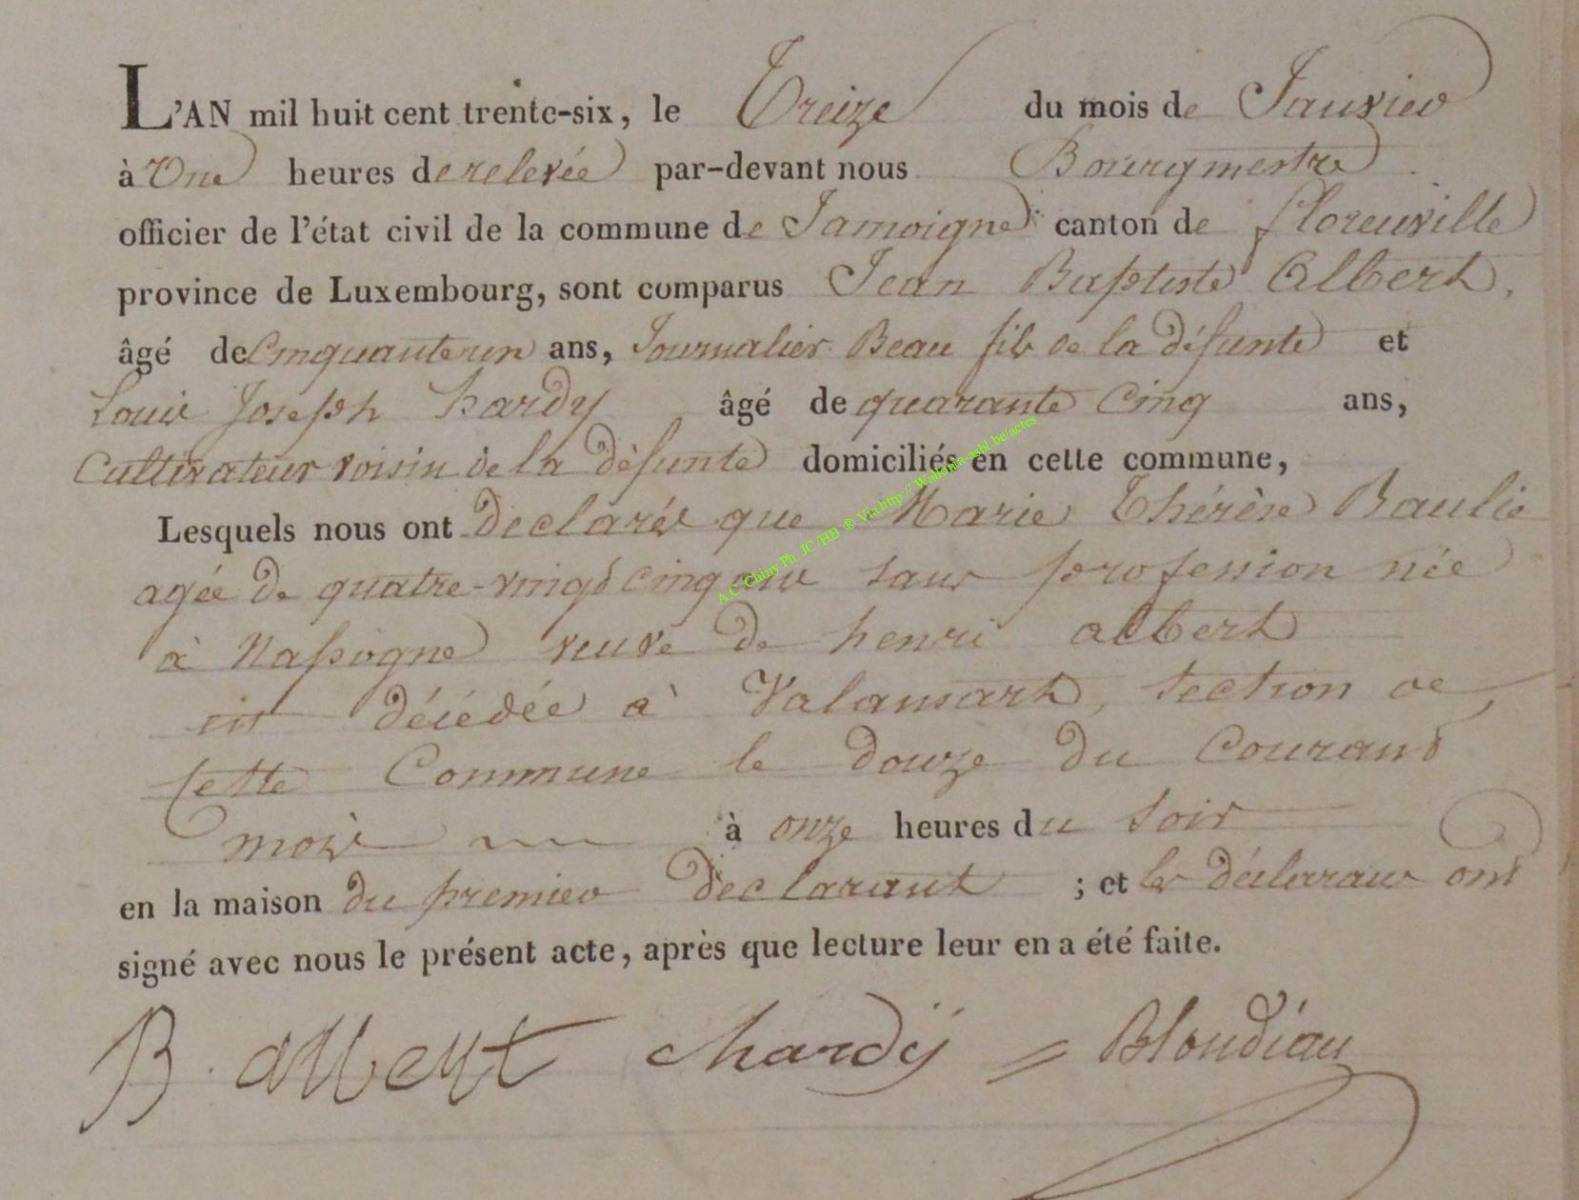 L'AN mil huit cent trente-six, le Treize du mois de Janvier
à Une heures de relevée par-devant nous Bourgmestre
officier de l'état civil de la commune de Jamoigne canton de florenville
province de Luxembourg, sont comparus Jean Baptiste Albert,
âgé de Cinquante un ans, Journalier Beau fils de la défunte et
Louis Joseph hardy âgé de quarante Cinq ans,
Cultivateur voisin de la défunte domiciliés en cette commune,
Lesquels nous ont declarés que Marie Thérèse Baulie
agée de quatre-vingt cinq ans sans profession née
à Nassogne veuve de henri albert
est décédée à Valansart, section de
cette Commune le douze du Courant
mois à onze heures du soir
en la maison du premier declarant ; et les déclarans ont
signé avec nous le présent acte, après que lecture leur en a été faite.
B. albert hardÿ = Blondiau
A.C. Chiny Ph JC /HB ® Via http:// Wallonia-asbl.be/actes